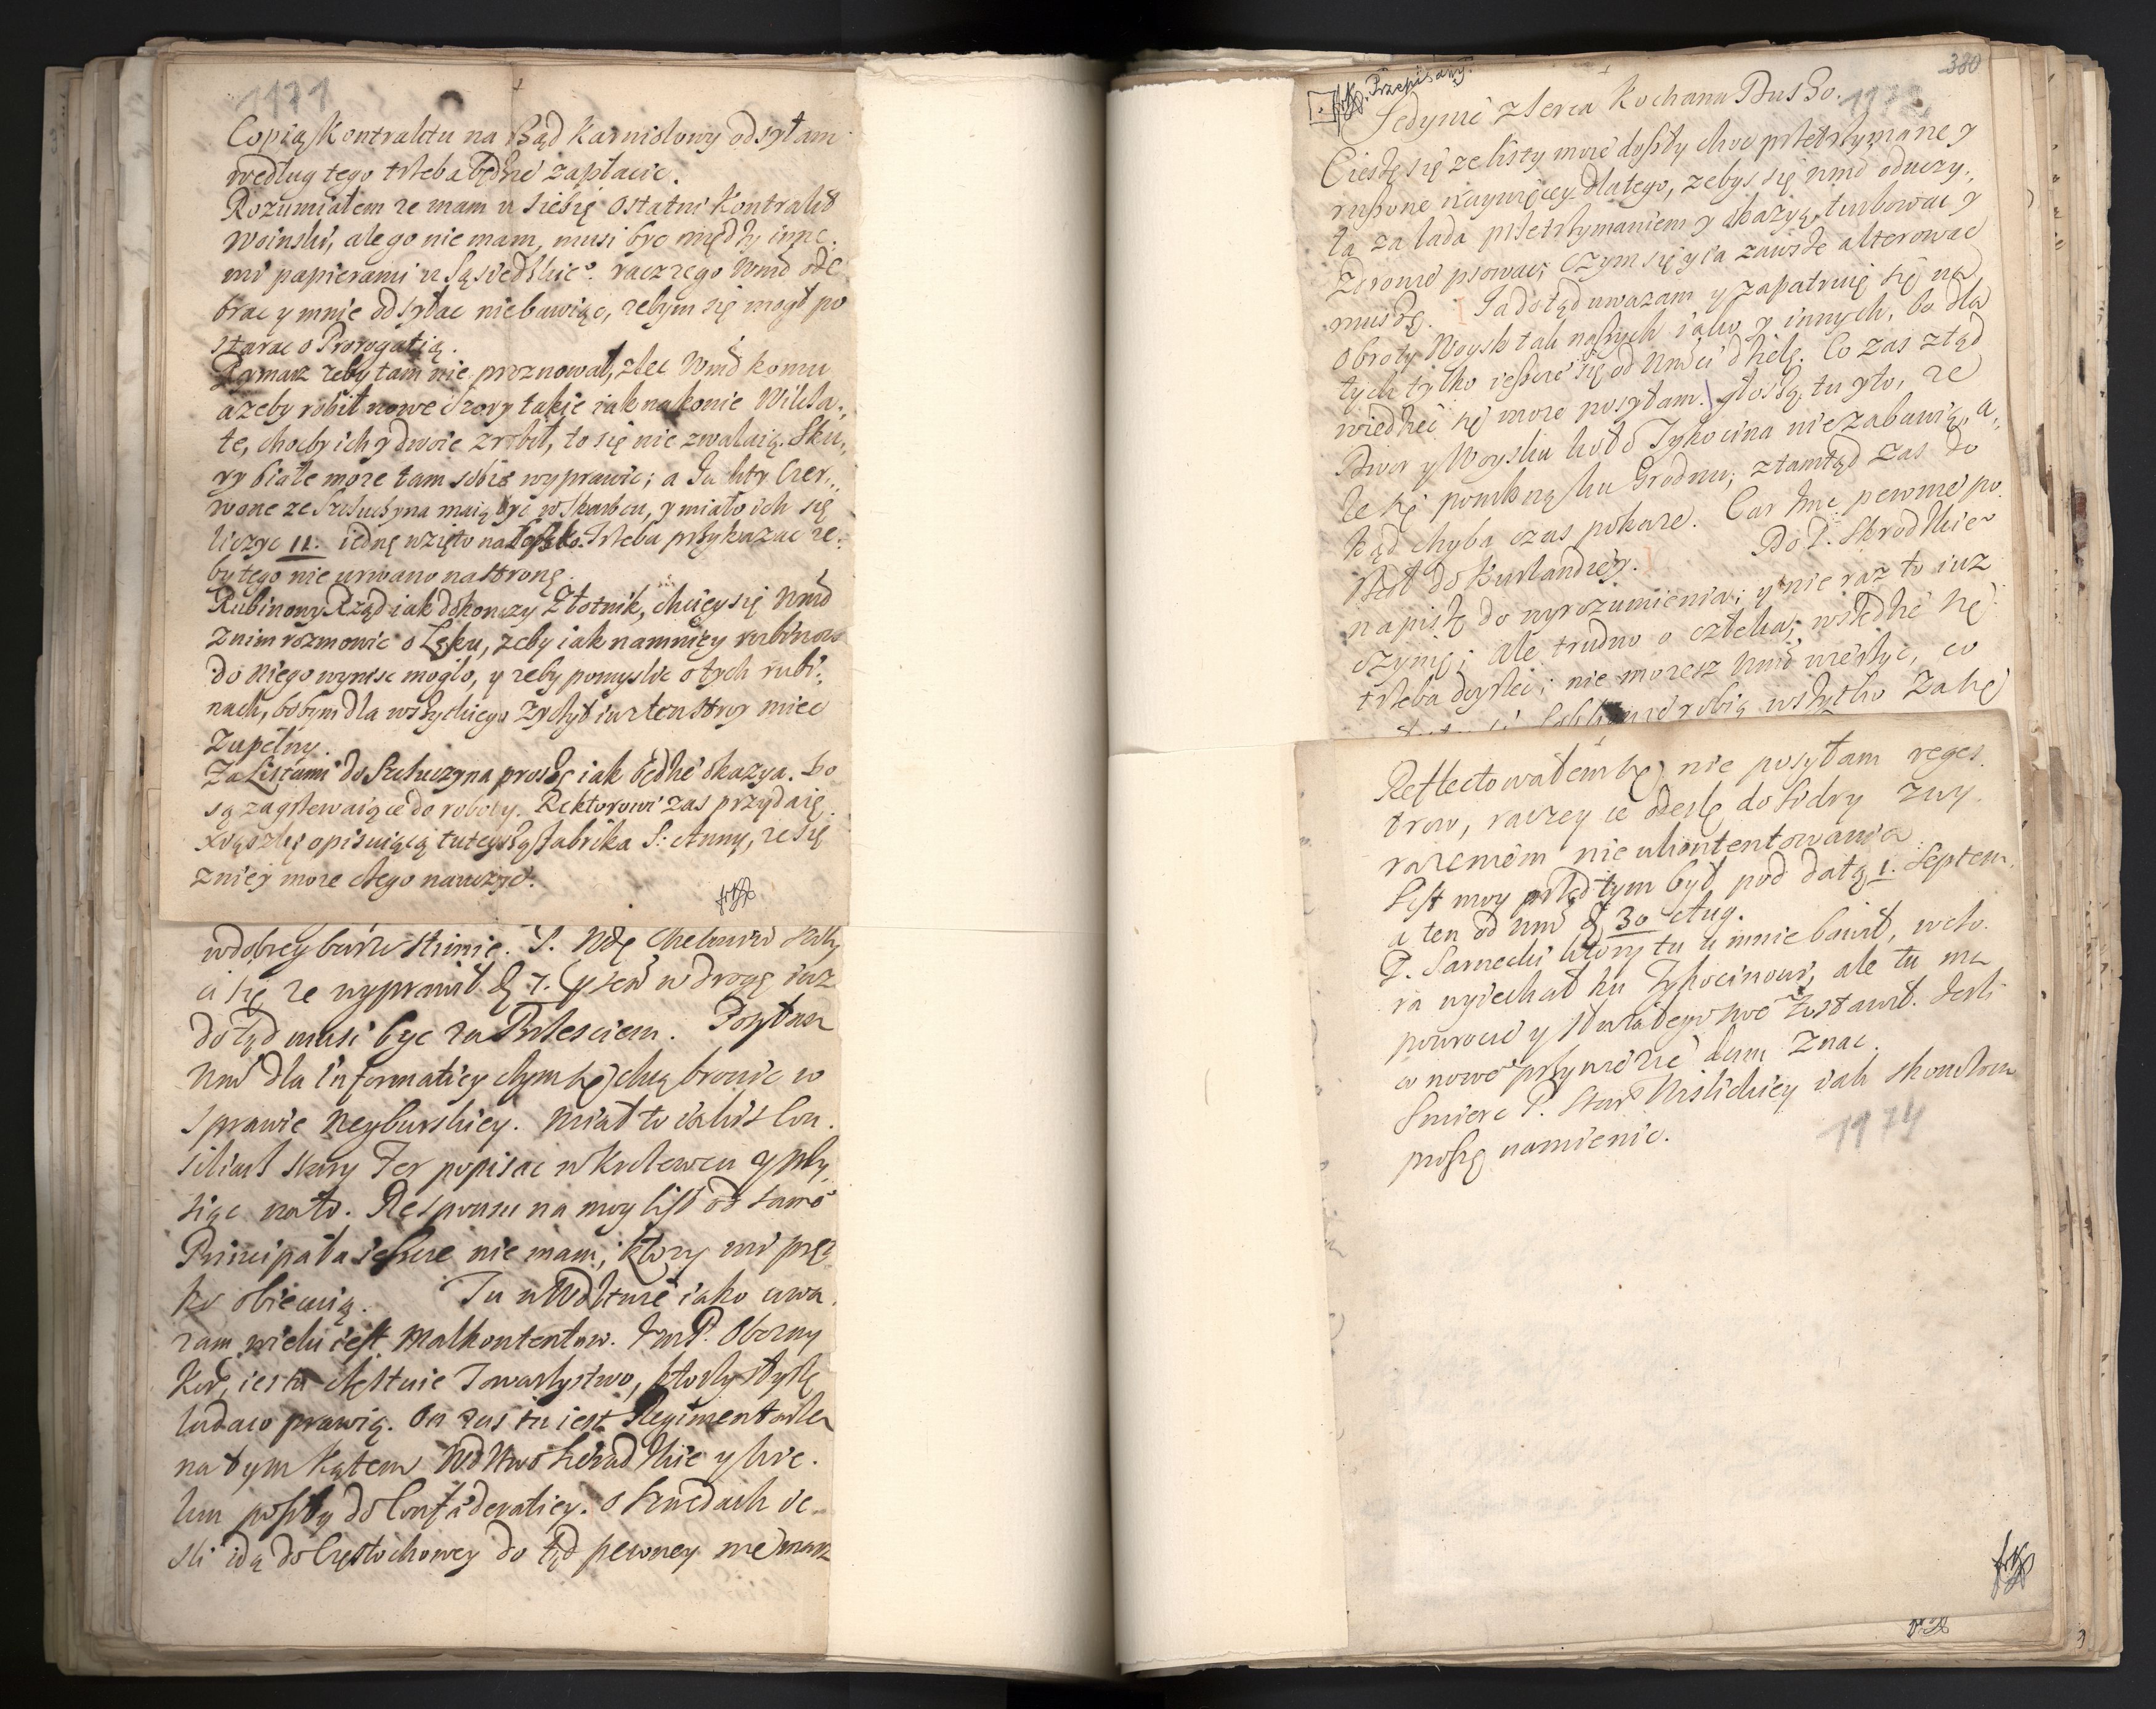 1171
Copią Kontraktu na Rząd Karniolowy odsyłam
według tego trzeba będzie zapłacic.
Rozumiałem ze mam u siebię ostatni Kontrakt
Woinski, ale go nie mam, musi byc między inne
mi papierami u Sąsiedzkie°. raczze go Wmć ode
brac y mnie odsyłac niebawiąc, zebym się mogł po
starac o Prorogatią.
Rymarz zeby tam nie proznował, zlec Wmć komu
azeby robił nowe Szory takie iak na konie Wilcza,,
te, chocby ich y dwoie zrobił, to się nie zwalaią. Sku,,
ry białe moze tam sobie wyprawic; a Juchty Czer,,
wone ze Szczuczyna maią byc w Skarbcu, y miało ich się
liczyc 11. iednę wzięto na
Trzeba przykazac ze,,
by tego nie urwano na stronę.
Rubinowy Rząd iak dokonczy Złotnik, chcięy się Wmć
z nim rozmowic o Lęku, zeby iak namnięy rubinow
do niego wynisc mogło, y zeby pomyslic o tych rubi,,
nach, bobym dla wszyckiego zyczył iuz ten stroy miec
Zupełny.
Za Listami do Szczuczyna proszę iak będzie okazya. bo
są zagrzewaiące do roboty. Rektorowi zas przydaię
Xiąszkę opisuiącą tuteyszą fabrikę S: Anny, ze się
z niey moze czego nauczyc.
w dobrey
P. Wdę Chelmin°
ci się ze wyprawił d. 7.
w drogę iuz
dotąd musi byc za Brzesciem. Posyłam
Wmci dla informaticy czym się chcą bronic w
sprawie Neyburskiey. Miał to iakis Con,
siliarz stary Fer popisac w Krolewcu y przy
siąc na to. Responsu na moy list od same°
Principała ieszcze nie mam, ktory mi pręt
ko obiecuią. Tu w Wdztwie iako uwa,
zam wielu iest Malkontentow. Jm P. Obozny
Kor, iest u
Towarzystwo, ktorzy
cudawo prawią. On zas tu iest Regimentarzem
na tym kątem Wdztwo Sieradzkie y Wie,
lun poszły do Confæderaticy. o Szwedach ie,
sli idą do Częstochowey do tąd pewney nie masz
380
Przepisany.
1173
Jedynie z Serca Kochana Duszo.
Cieszę się ze listy moie doszły choc przetrzymane y
rupone naywięcey dlatego, zebys się Wmć oduczy,,
ła za lada przetrzymaniem y okazyą, turbowac y
Zdrowie psowac, czym się y ia zawsze alterowac
muszę. Ja dotąd uwazam y zapatruię się na
Obroty Woysk tak naszych iako y innych, bo dla
tych tylko ieszcze się od Wmści dzielę. Co zas ztąd
wiedziec się moze posyłam. głoszą tu y to, ze
Dwor y Woyska koło Tykocina nie zabawią, a,,
le się pomkną ku Grodnu; ztamtąd zas do
kąd chyba czas pokaze. Car Jmc pewnie po
szedł do Kurlandiey. Do P. Skrodzkie°
napiszę do wyrozumienia; y nie raz to iuz
czynię; ale trudno o człeka; wszędzie się
trzeba doyrzec; nie mozesz Wmć wierzyc, co
robią wszytko za się
Reflectowałem się, nie posyłam reges,
trow, raczey ie odeslę do Sidry z wy,
razeniem niekontentowania
List moy przed tym był pod datą 1. Septem,
a ten od Wmć d. 30 Aug.
P. Sarnecki ktory tu u mnie bawił, wczo,
ra wyiechał ku Tykocinowi, ale tu ma
powrocic y
swe° zostawił. Jesli
co nowe° przywiezie dam znac.
Smierc P. Star Wislickiey iak skonczona
proszę namienic.
1174